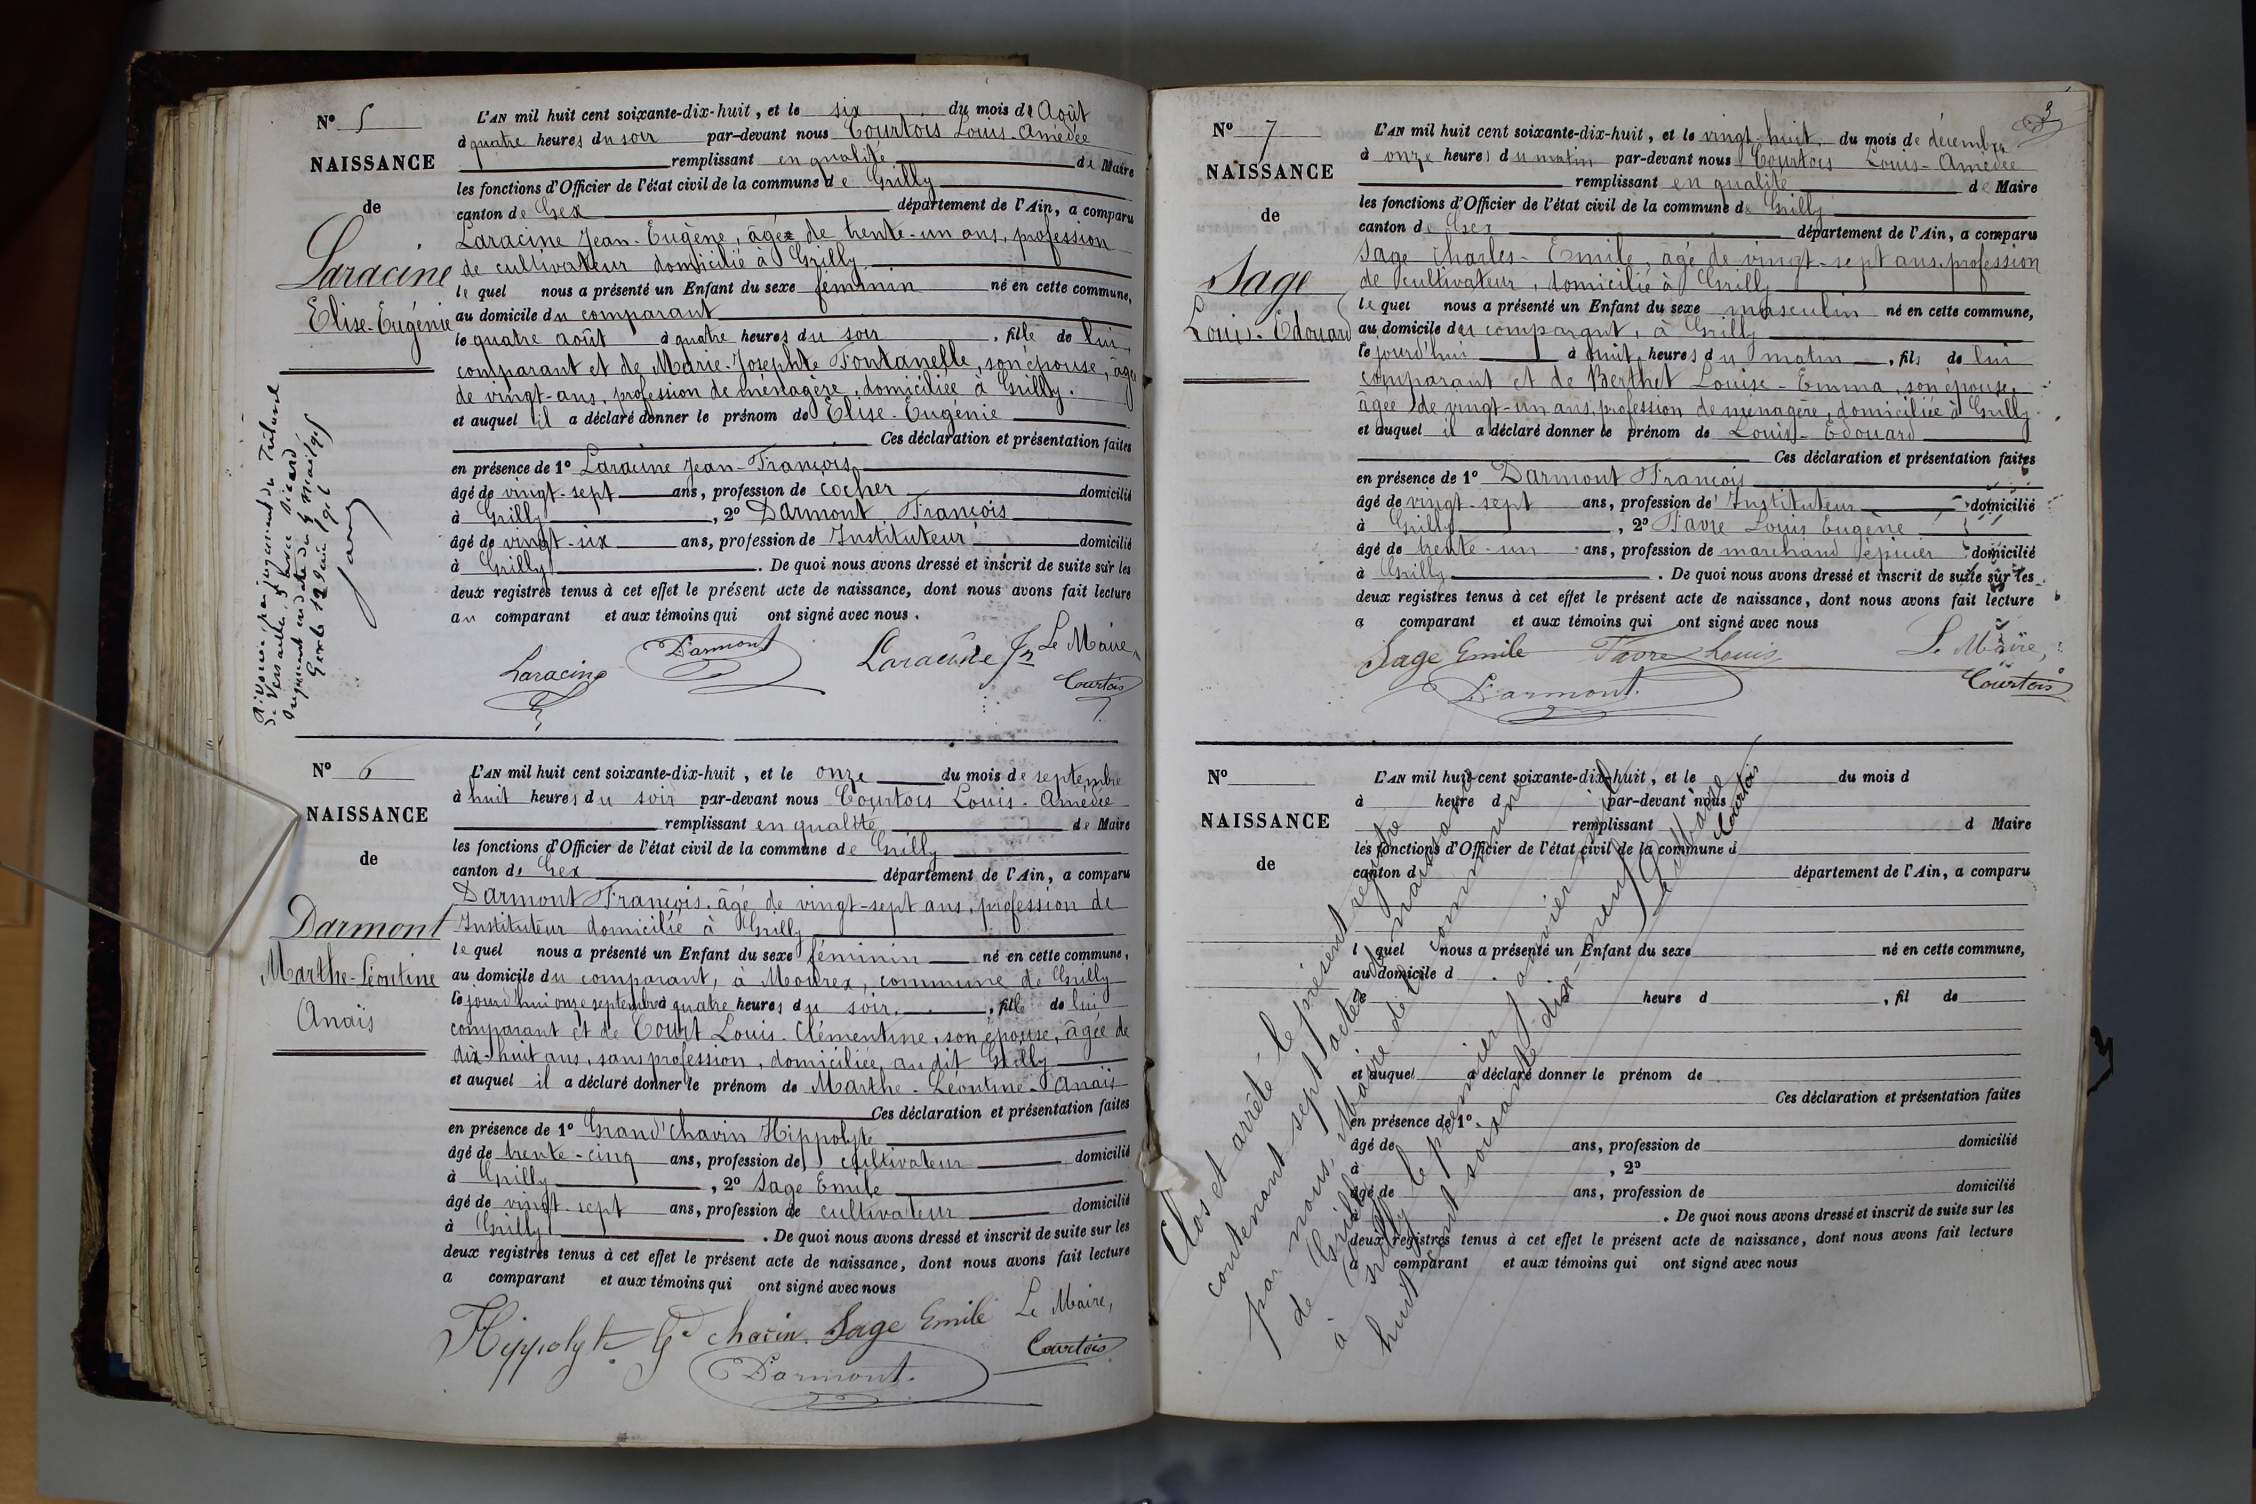 N° 5
NAISSANCE
de
Laracine
Elise-Eugénie
L'AN mil huit cent soixante-dix-huit, et le six du mois de Août
à quatre heures du soir par-devant nous Courtois Louis-Amédée
remplissant en qualité de Maire
les fonctions d'Officier de l'état civil de la commune de Grilly
canton de Gex département de l'Ain, a comparu
Laracine Jean-Eugène, âgé de trente-un ans, profession
de cultivateur domicilié à Grilly
le quel nous a présenté un Enfant du sexe féminin né en cette commune,
au domicile du comparant
le quatre août à quatre heures du soir, fille de lui
comparant et de Marie-Josephte Fontanelle, son épouse, âgée
de vingt-ans, profession de ménagère, domiciliée à Grilly.
et auquel il a déclaré donner le prénom de Elise-Eugénie
Ces déclaration et présentation faites
en présence de 1° Laracine Jean-François
âgé de vingt-sept ans, profession de cocher domicilié
à Grilly, 2° Darmont François
âgé de vingt-six ans, profession de Instituteur domicilié
à Grilly. De quoi nous avons dressé et inscrit de suite sur les
deux registres tenus à cet effet le présent acte de naissance, dont nous avons fait lecture
au comparant et aux témoins qui ont signé avec nous.
Laracine Darmont Laracine Jn Le Maire,
Courtois
N° 6
NAISSANCE
de
Darmont
Marthe-Léontine
Anaïs
L'AN mil huit cent soixante-dix-huit, et le onze du mois de septembre
à huit heures du soir par-devant nous Courtois Louis-Amédée
remplissant en qualité de Maire
les fonctions d'Officier de l'état civil de la commune de Grilly
canton de Gex département de l'Ain, a comparu
Darmont François, âgé de vingt-sept ans, profession de
Instituteur domicilié à Grilly
le quel nous a présenté un Enfant du sexe féminin né en cette commune,
au domicile du comparant, à Mourex, commune de Grilly
le jourd'hui onze septembre à quatre heures du soir, fille de lui
comparant et de Court Louis-Clémentine, son épouse, âgée de
dix-huit ans, sans profession, domiciliée au dit Grilly
et auquel il a déclaré donner le prénom de Marthe-Léontine-Anaïs
Ces déclaration et présentation faites
en présence de 1° Grand'chavin Hippolyte
âgé de trente-cinq ans, profession de cultivateur domicilié
à Grilly, 2° Sage Emile
âgé de vingt-sept ans, profession de cultivateur domicilié
à Grilly. De quoi nous avons dressé et inscrit de suite sur les
deux registres tenus à cet effet le présent acte de naissance, dont nous avons fait lecture
a comparant et aux témoins qui ont signé avec nous
Hippolyte Gd chavin Sage Emile Le Maire,
Darmont Courtois
3
N° 7
NAISSANCE
de
Sage
Louis-Edouard
L'AN mil huit cent soixante-dix-huit, et le vingt-huit du mois de décembre
à onze heures du matin par-devant nous Courtois Louis-Amédée
remplissant en qualité de Maire
les fonctions d'Officier de l'état civil de la commune de Grilly
canton de Gex département de l'Ain, a comparu
Sage Charles-Emile, âgé de vingt-sept ans, profession
de cultivateur, domicilié à Grilly
le quel nous a présenté un Enfant du sexe masculin né en cette commune,
au domicile du comparant, à Grilly
le jourd'hui à huit heures du matin, fils de lui
comparant et de Berthet Louise-Emma, son épouse,
âgée de vingt-un ans, profession de ménagère, domiciliée à Grilly
et auquel il a déclaré donner le prénom de Louis-Edouard
Ces déclaration et présentation faites
en présence de 1° Darmont François
âgé de vingt-sept ans, profession de Instituteur domicilié
à Grilly, 2° Favre Louis Eugène
âgé de trente-un ans, profession de marchand épicier domicilié
à Grilly. De quoi nous avons dressé et inscrit de suite sur les
deux registres tenus à cet effet le présent acte de naissance, dont nous avons fait lecture
a comparant et aux témoins qui ont signé avec nous
Sage Emile Favre Louis Le Maire,
Darmont. Courtois
N°
NAISSANCE
de
L'AN mil huit cent soixante-dix-huit, et le du mois d
à heure d par-devant nous
remplissant d Maire
les fonctions d'Officier de l'état civil de la commune d
canton d département de l'Ain, a comparu
l quel nous a présenté un Enfant du sexe né en cette commune,
au domicile d
le heure d, fil de
et auquel a déclaré donner le prénom de
Ces déclaration et présentation faites
en présence de 1°
âgé de ans, profession de domicilié
à, 2°
âgé de ans, profession de domicilié
à. De quoi nous avons dressé et inscrit de suite sur les
deux registres tenus à cet effet le présent acte de naissance, dont nous avons fait lecture
a comparant et aux témoins qui ont signé avec nous
Clos et arrêté le présent registre
contenant sept actes de naissance
par nous, Maire de la commune
de Grilly
à Grilly le premier janvier mil
huit cent soixante dix-neuf
Le Maire
Courtois